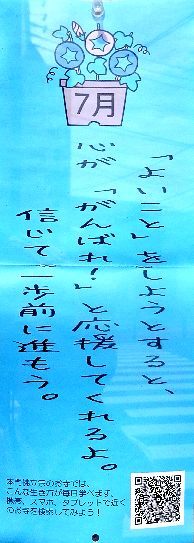 7月
「よいこと」をしようとすると、
心が「がんばれ！」と応援してくれるよ。
信じて一歩前に進もう。
本門佛立宗のお寺では、
こんな生き方が毎日学べます。
携帯、スマホ、タブレットで近く
のお寺を検索してみよう！